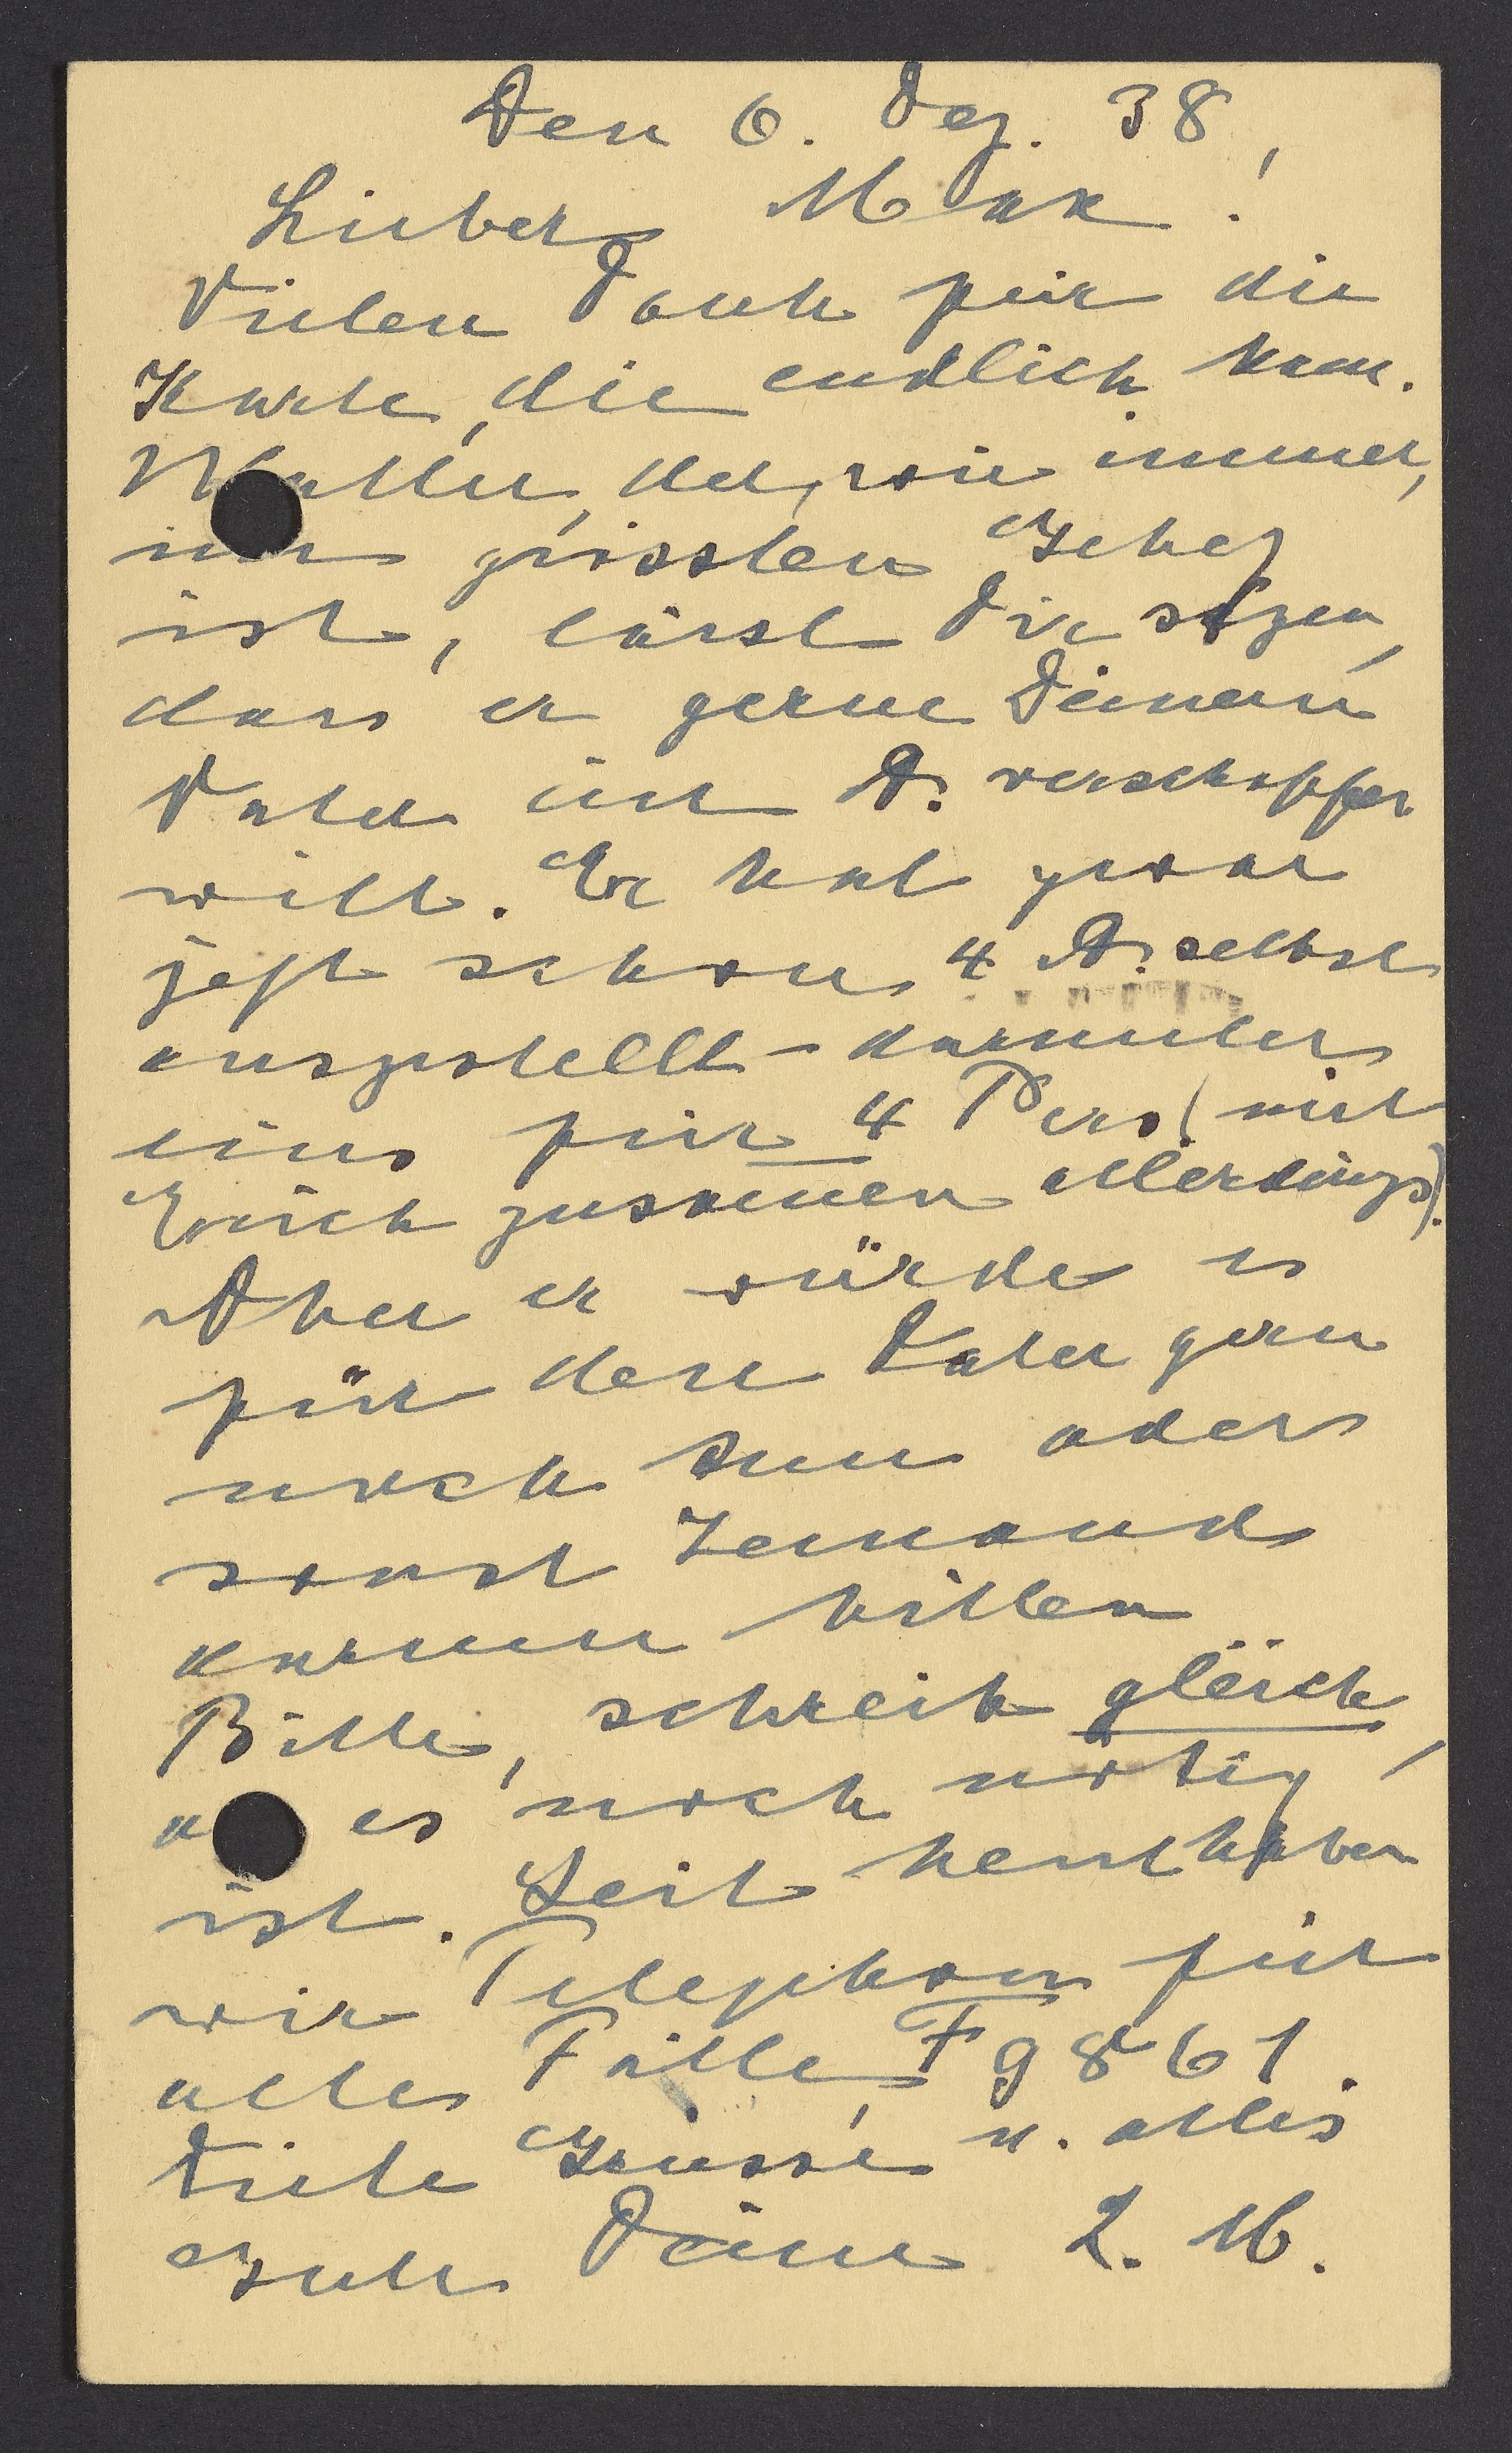 Den 6. Dez. 38,
Lieber Max!
Vielen Dank für die
Karte, die endlich kam.
Walter, der, wie immer,
im grössten Gehez
ist, lässt Dir sagen,
dass er gerne Deinem
Vater ein A. verschaffen
will. Er hat zwar
jetzt schon 4 A. selbst
ausgestellt - darunter
eins für 4 Pers. (mit
Erich zusammen allerdings).
Aber er würde es
für den Vater gern
noch tun oder
sonst Jemand
darum bitten
Bitte, schreib gleich,
es noch nötig
ist. Seit heut haben
wir Telephon für
alle Fälle, F 9861.
Viele Grüsse u. alles
Gute Deine L. M.